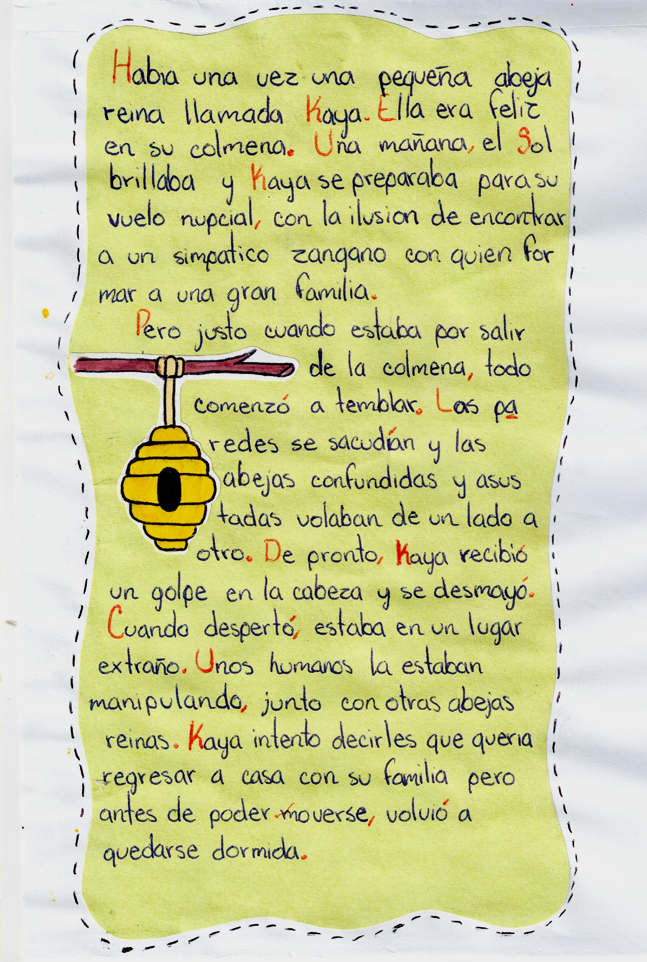 Habia una vez una pequeña abeja
reina llamada Kaya. Ella era feliz
en su colmena. Una mañana, el Sol
brillaba y Kaya se preparaba para su
vuelo nupcial, con la ilusion de encontrar
a un simpatico zangano con quien for
mar a una gran familia.
Pero justo cuando estaba por salir
de la colmena, todo
comenzó a temblar. Las pa
redes se sacudían y las
abejas confundidas y asus
tadas volaban de un lado a
otro. De pronto, Kaya recibió
un golpe en la cabeza y se desmayó.
Cuando despertó, estaba en un lugar
extraño. Unos humanos la estaban
manipulando, junto con otras abejas
reinas. Kaya intento decirles que queria
regresar a casa con su familia pero
antes de poder moverse, volvió a
quedarse dormida.